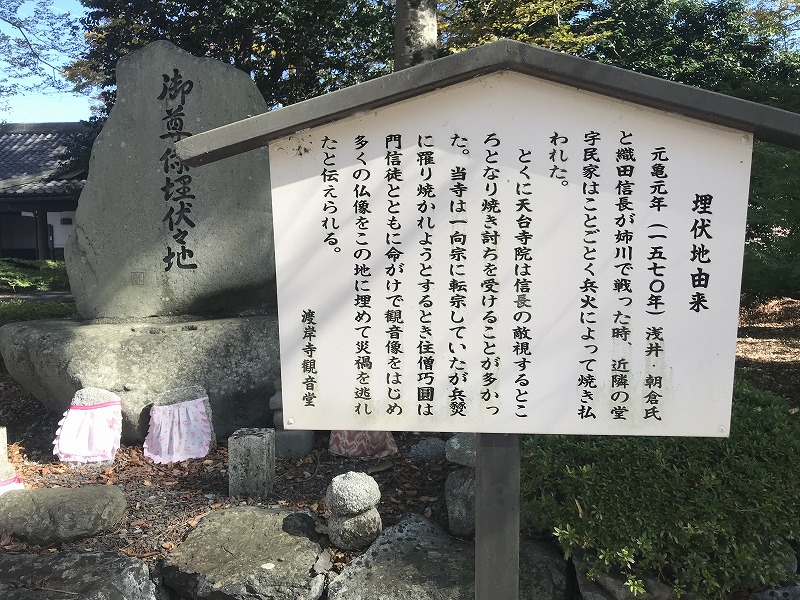 埋伏地由来
元亀元年(一五七〇年)浅井・朝倉氏
と織田信長が姉川で戦った時、近隣の堂
宇民家はことごとく兵火によって焼き払
われた。
とくに天台寺院は信長の敵視するとこ
ろとなり焼き討ちを受けることが多かっ
た。当寺は一向宗に転宗していたが兵燹
に罹り焼かれようとするとき住僧巧圓は
門信徒とともに命がけで観音像をはじめ
多くの仏像をこの地に埋めて災禍を逃れ
たと伝えられる。
渡岸寺観音堂
御尊像埋伏之地